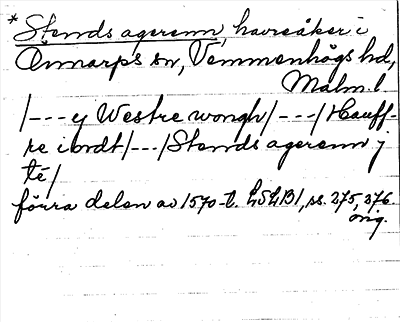 * Stends agerenn, havreåker i
Önnarps sn, Vemmenhögs hd,
Malm. l.
/---y Westre wongh/---/Hauff-
re iordt/---/Stends agerenn j
té/
förra delen av 1570-t. LSLB1, ss. 275, 276.
orig.